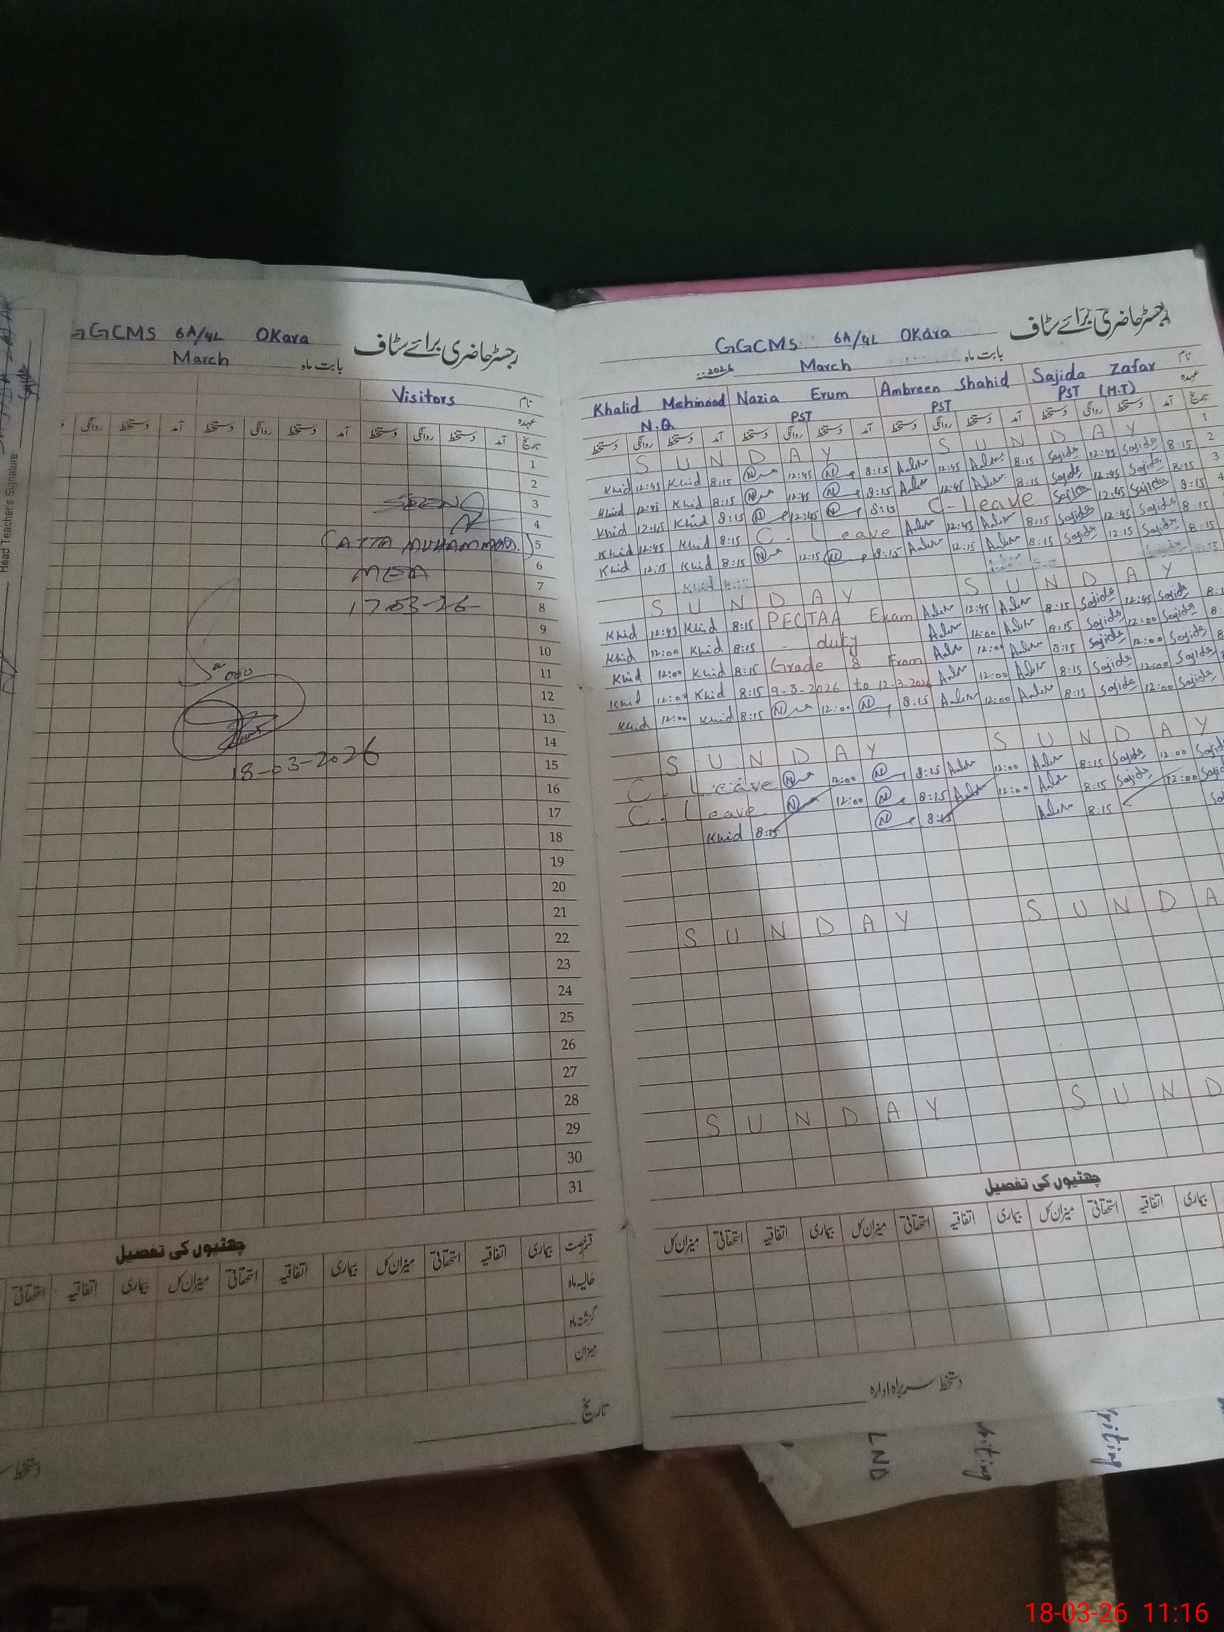 GGCMS 6A/4L Okara
رجسٹر حاضری برائے سٹاف
March
بابت ماہ
Visitors
نام
عہدہ
تاریخ آمد دستخط روانگی دستخط آمد دستخط روانگی دستخط آمد دستخط روانگی
1
2
3
SEEN
4
5
MUHAMMAD
6
MEA
7
8
17-03-26
9
10
11
12
13
14
15
18-03-2026
16
17
18
19
20
21
22
23
24
25
26
27
28
29
30
31
چھٹیوں کی تفصیل
قسم رخصت بیماری اتفاقیہ استحقاقی میزان کل بیماری اتفاقیہ استحقاقی میزان کل بیماری اتفاقیہ استحقاقی
حالیہ ماہ
گزشتہ ماہ
میزان
تاریخ
Head Teacher's Signature
GGCMS 6A/4L Okara
رجسٹر حاضری برائے سٹاف
March 2026
بابت ماہ
نام
Khalid Mehmood Nazia Erum Ambreen Shahid Sajida Zafar
N.Q. PST PST PST (H.T)
عہدہ
تاریخ آمد دستخط روانگی دستخط آمد دستخط روانگی دستخط آمد دستخط روانگی دستخط
1 SUNDAY SUNDAY
2 Khid 12:45 Khid 8:15 12:45 8:15 12:45 8:15 Sajida 12:45 Sajida 8:15
3 Khid 12:45 Khid 8:15 12:45 8:15 12:45 8:15 Sajida 12:45 Sajida 8:15
4 Khid 12:45 Khid 8:15 12:45 8:15 C-Leave Sajida 12:45 Sajida 8:15
Khid 12:45 Khid 8:15 C. Leave 12:45 8:15 Sajida 12:45 Sajida 8:15
Khid 12:15 Khid 8:15 12:15 8:15 12:15 8:15 Sajida 12:15 Sajida 8:15
SUNDAY SUNDAY
Khid 12:45 Khid 8:15 PECTAA Exam 12:45 8:15 Sajida 12:45 Sajida
Khid 12:00 Khid 8:15 duty 12:00 8:15 Sajida 12:00 Sajida
Khid 12:00 Khid 8:15 Grade 8 Exam 12:00 8:15 Sajida 12:00 Sajida
Khid 12:00 Khid 8:15 9-3-2026 to 12-3-2026 12:00 8:15 Sajida 12:00 Sajida
Khid 12:00 Khid 8:15 12:00 8:15 12:00 8:15 Sajida 12:00 Sajida
SUNDAY SUNDAY
C. Leave 12:00 8:15 12:00 8:15 Sajida 12:00
C. Leave 12:00 8:15 12:00 8:15 Sajida 12:00
Khid 8:15 8:15 8:15
SUNDAY SUNDA
SUNDAY SUND
چھٹیوں کی تفصیل
بیماری اتفاقیہ استحقاقی میزان کل بیماری اتفاقیہ استحقاقی میزان کل بیماری اتفاقیہ استحقاقی میزان کل
دستخط سربراہ ادارہ
LND
writing
writing
18-03-26 11:16